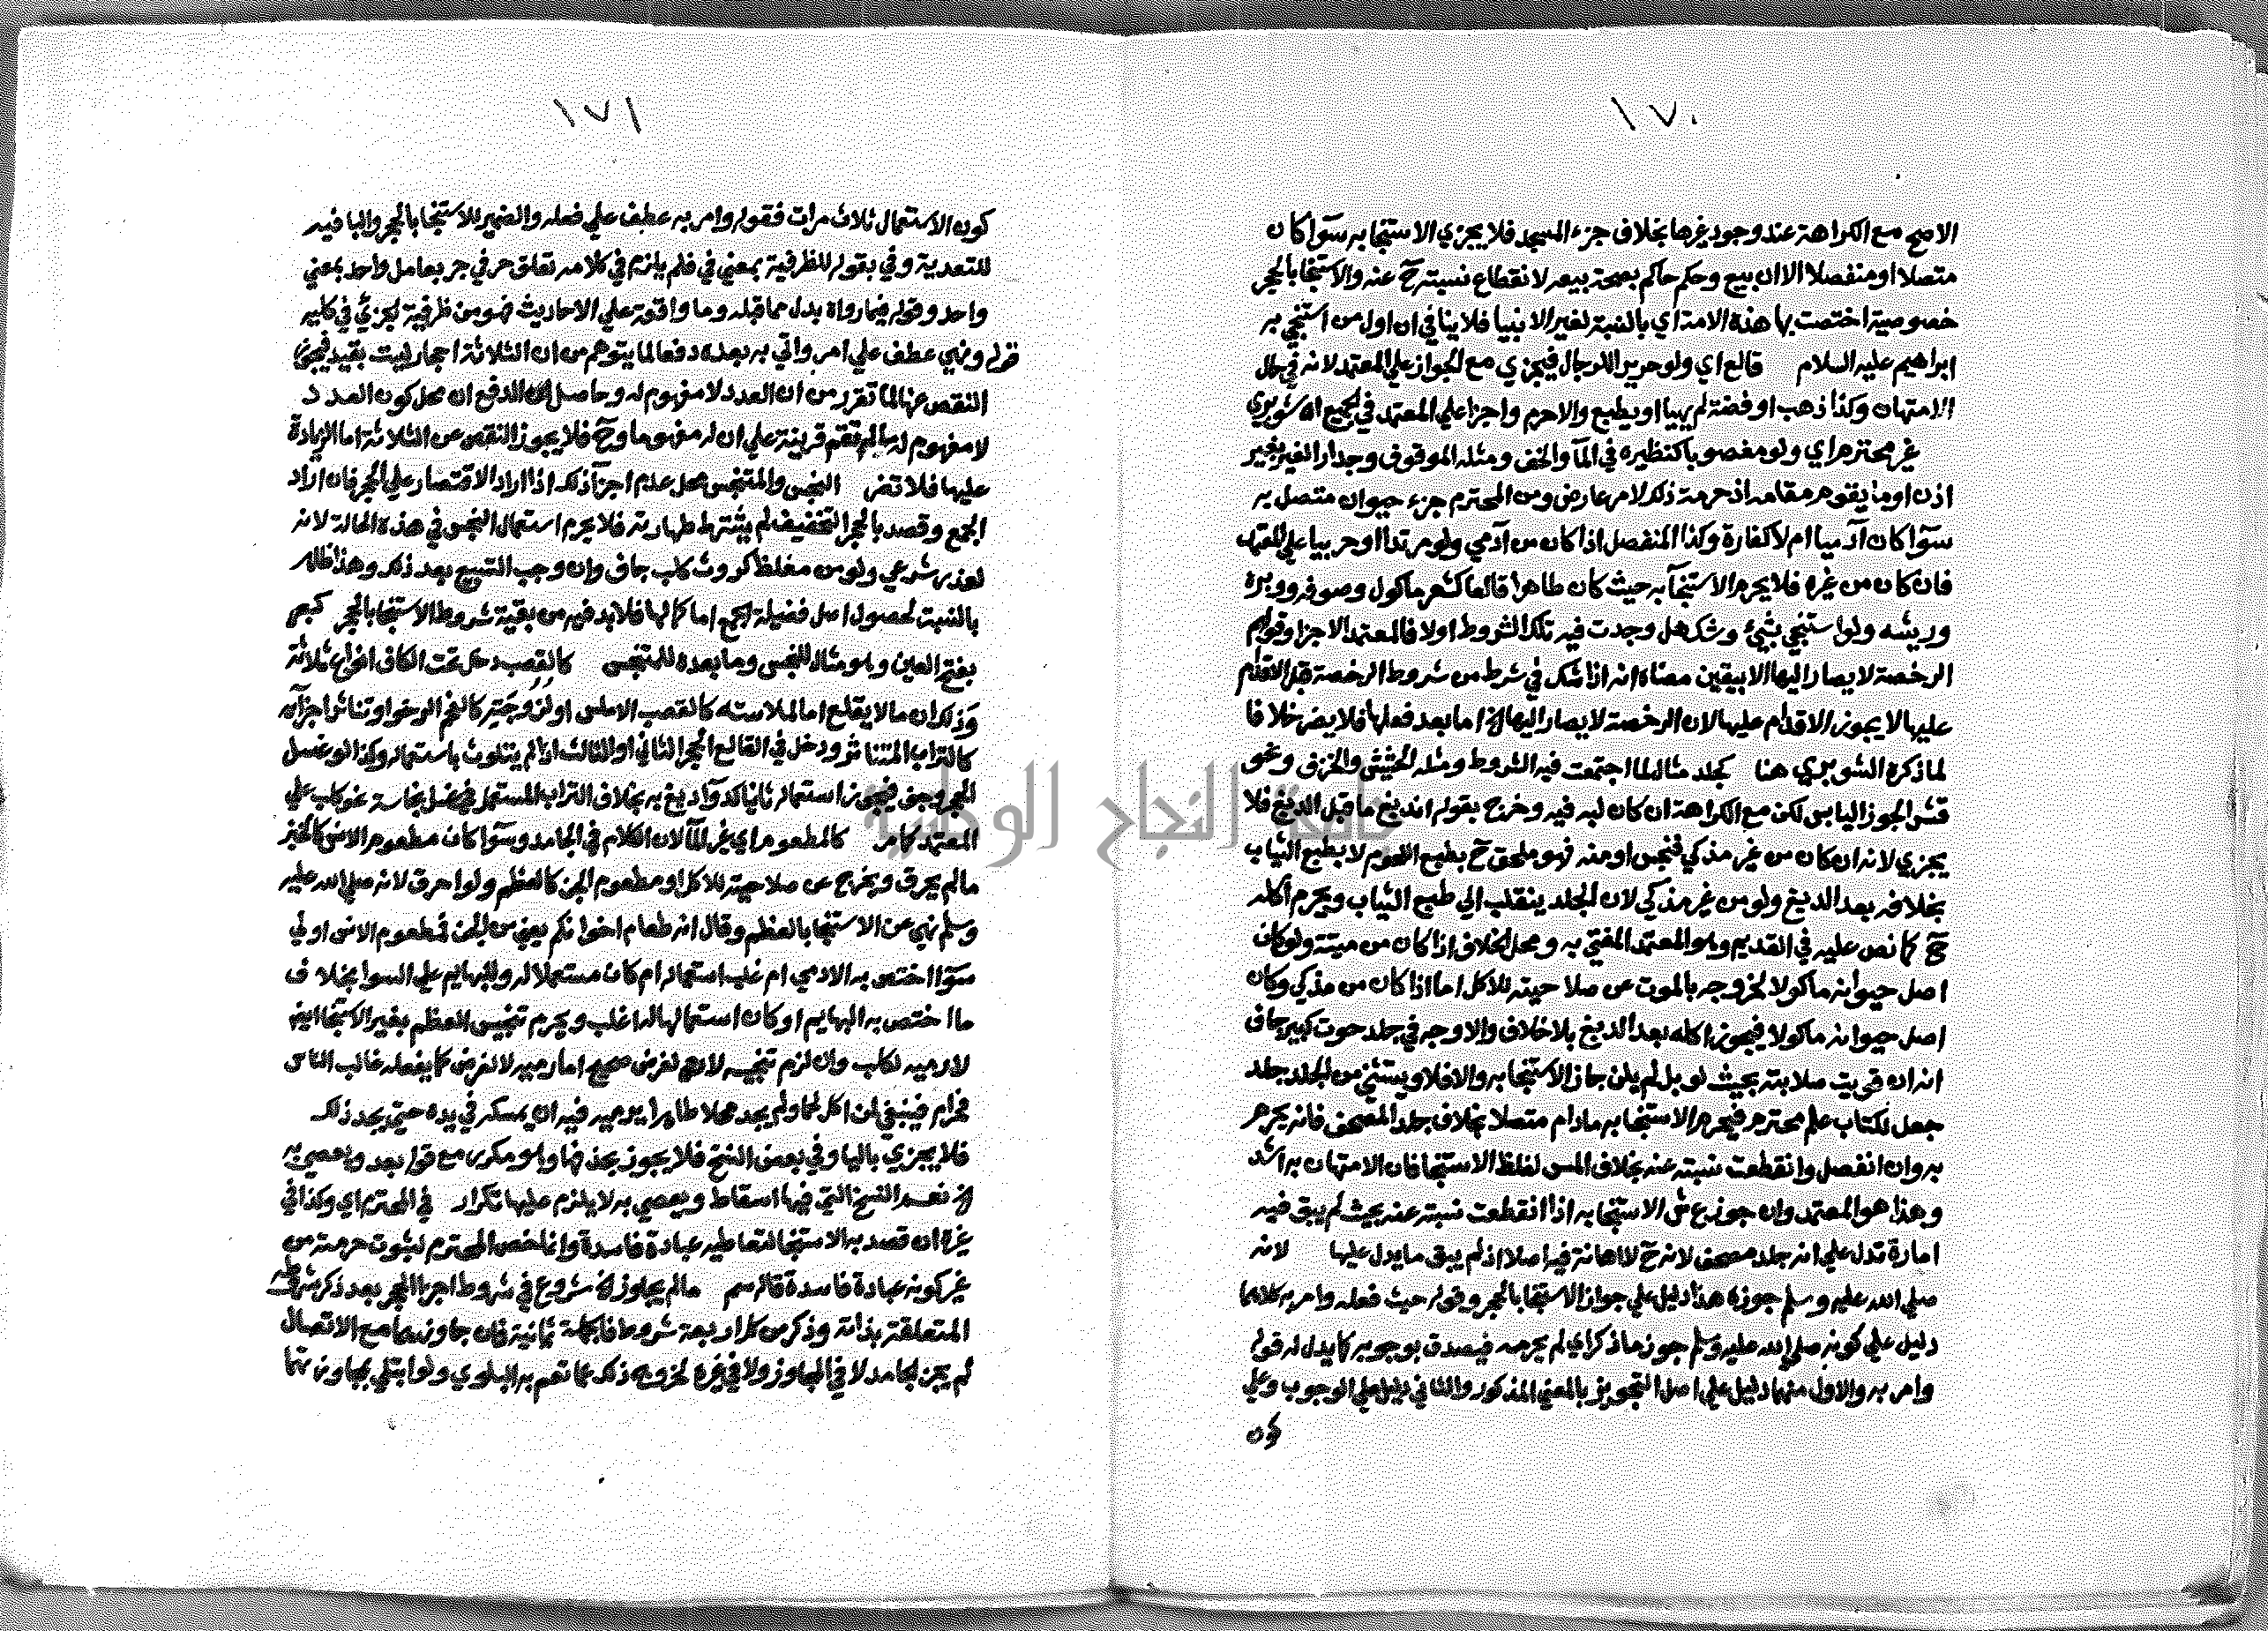 ١٧٠
الاصح مع الكراهة عند وجود غيرها بخلاف جزء المسجد فلا يجزي الاستنجا به سوآ كان
متصلا او منفصلا الا ان بيع وحكم حاكم بصحة بيعه لانقطاع نسبته ح عنه والاستنجا بالحجر
خصوصية اختصت بها هذه الامة اي بالنسبة لغير الانبيا فلا ينافي ان اول من استنجي به
ابراهيم عليه السلام قالع اي ولو حرير اللرجال فيجزي مع الجواز علي المعتمد لانه في حال
الامتهان وكذا ذهب او فضة لم يهيا او يطبع والاحرم واجزا علي المعتمد في الجميع اه شوبري
غير محترم اي ولو مغصوبا كنظيره في المآ والخف ومثله الموقوف وجدار الغير بغير
اذن او ما يقوم مقامه اذ حرمة ذلك لامر عارض ومن المحترم جزء حيوان متصل به
سوآ كان آدميا ام لا كفارة وكذا المنفصل اذا كان من آدمي ولو مرتدا او حربيا علي المعتمد
فان كان من غيره فلا يحرم الاستنجآ به حيث كان طاهرا قالعا كشعر ماكول وصوفه ووبره
وريشه ولو استنجي بشيء وشك هل وجدت فيه تلك الشروط اولا فالمعتمد الاجزا وقولهم
الرخصة لا يصار اليها الا بيقين معناه انه اذا شك في شرط من شروط الرخصة قبل الاقدام
عليها لا يجوز الاقدام عليها لان الرخصة لا يصار اليها الخ اما بعد فعلها فلا يضر خلافا
لما ذكره الشوبري هنا كجلد مثال لما اجتمعت فيه الشروط ومثله الحشيش والخزف ونحو
قشر الجوز اليابس لكن مع الكراهة ان كان لبه فيه وخرج بقوله اندبغ ما قبل الدبغ فلا
يجزي لانه ان كان من غير مذكي فنجس او منه فهو ملحق ح بطبع اللحوم لا بطبع الثياب
بخلافه بعد الدبغ ولو من غير مذكي لان الجلد ينقلب الي طبع الثياب ويحرم اكله
ح كما نص عليه في القديم وهو المعتمد المفتي به ومحل الخلاف اذا كان من ميتة ولو كان
اصل حيوانه ماكولا لخروجه بالموت عن صلاحيته للاكل اما اذا كان من مذكي وكان
اصل حيوانه ماكولا فيجوز اكله بعد الدبغ بلا خلاف والاوجه في جلد حوت كبير جاف
انه ان قويت صلابته بحيث لو بل لم يلن جاز الاستنجا به والا فلا ويستثني من الجلد جلد
جعل لكتاب علم محترم فيحرم الاستنجا به مادام متصلا بخلاف جلد المصحف فانه يحرم
به وان انفصل وانقطعت نسبته عنه بخلاف المس لغلظ الاستنجا فان الامتهان به اشد
وهذا هو المعتمد وان جوز ع ش الاستنجا به اذا انقطعت نسبته عنه بحيث لم يبق فيه
امارة تدل علي انه جلد مصحف لانه ح لا اهانة فيه اصلا اذ لم يبق ما يدل عليها لانه
صلي الله عليه وسلم جوزه هذا دليل علي جواز الاستنجا بالحجر وقوله حيث فعله وامر به كلاهما
دليل علي كونه صلي الله عليه وسلم جوز ما ذكر اي لم يحرمه فيصدق بوجوبه كما يدل له قوله
وامر به والاول منهما دليل علي اصل التجويز بالمعني المذكور والثاني دليل علي الوجوب وعلي
كون
١٧١
كون الاستعمال ثلاث مرات فقوله وامر به عطف علي فعله والضمير للاستنجا بالحجر والبا فيه
للتعدية وفي بقوله للظرفية بمعني في فلم يلزم في كلامه تعلق حرفي جر بعامل واحد بمعني
واحد وقوله فيما رواه بدل مما قبله وما واقعة علي الاحاديث فهو من ظرفية الجزئي في كليه
قوله ونهي عطف علي امر واتي به بعده دفعا لما يتوهم من ان الثلاثة احجار ليست بقيد فيجوز
النقص عنها لما تقرر من ان العدد لا مفهوم له وحاصل الدفع ان محل كون العدد
لا مفهوم له ما لم تقم قرينة علي ان له مفهوما وح فلا يجوز النقص عن الثلاثة اما الزيادة
عليها فلا تضر النجس والمتنجس محل عدم اجزآ ذلك اذا اراد الاقتصار علي الحجر فان اراد
الجمع وقصد بالحجر التخفيف لم يشترط طهارته فلا يحرم استعمال النجس في هذه الحالة لانه
لعذر شرعي ولو من مغلظ كروث كلب جاف وان وجب التسبيع بعد ذلك وهذا ظاهر
بالنسبة لحصول اصل فضيلة الجمع اما كمالها فلا بد فيه من بقية شروط الاستنجا بالحجر كبعر
بفتح العين وهو مثال للنجس وما بعده للمتنجس كالقصب دخل تحت الكاف انواع ثلاثة
وذلك ان ما لا يقلع اما لملاسته كالقصب الاملس او للزوجته كالفحم الرخو او تناثر اجزآئه
كالتراب المتناثر ودخل في القالع الحجر الثاني او الثالث اذا لم يتلوث باستعماله وكذا لو غسل
الحجر وجف فيجوز استعماله ثانيا كدوآ دبغ به بخلاف التراب المستعمل في غسل نجاسة نحو كلب علي
المعتمد كما مر كالمطعوم اي غير المآ لان الكلام في الجامد وسوآ كان مطعوم الانس كالخبز
مالم يحرق ويخرج عن صلاحيته للاكل او مطعوم الجن كالعظم ولو احرق لانه صلي الله عليه
وسلم نهي عن الاستنجا بالعظم وقال انه طعام اخوانكم يعني من الجن فمطعوم الانس اولي
سوآ اختص به الادمي ام غلب استعماله له ام كان مستعملا له وللبهايم علي السوا بخلاف
ما اختص به البهايم او كان استعمالها له اغلب ويحرم تنجيس العظم بغير الاستنجا ايضا
لا رميه لكلب وان لزم تنجيسه لانه لغرض صحيح اما رميه لا لغرض كما يفعله غالب الناس
فحرام فينبغي لمن اكل لحما ولم يجد محلا طاهرا يرميه فيه ان يمسكه في يده حتي يجد ذلك
فلا يجزي باليا وفي بعض النسخ فلا يجوز بحذفها وهو مكرر مع قوله بعد ويعصي به
الخ نعم النسخ التي فيها اسقاط ويعصي به لا يلزم عليها تكرار في المحترم اي وكذا في
غيره ان قصد به الاستنجا لتعاطيه عبادة فاسدة وانما خص المحترم لثبوت حرمته من
غير كونه عبادة فاسدة قاله سم مالم يجاوز الخ شروع في شروط اجزا الحجر بعد ذكر شروطه
المتعلقة بذاته وذكر من كل اربعة شروط فالجملة ثمانية فان جاوزهما مع الاتصال
لم يجز الجامد لا في المجاوز ولا في غيره لخروج ذلك عما تعم به البلوي ولو ابتلي بمجاوزتهما
جامعة النجاح الوطنية